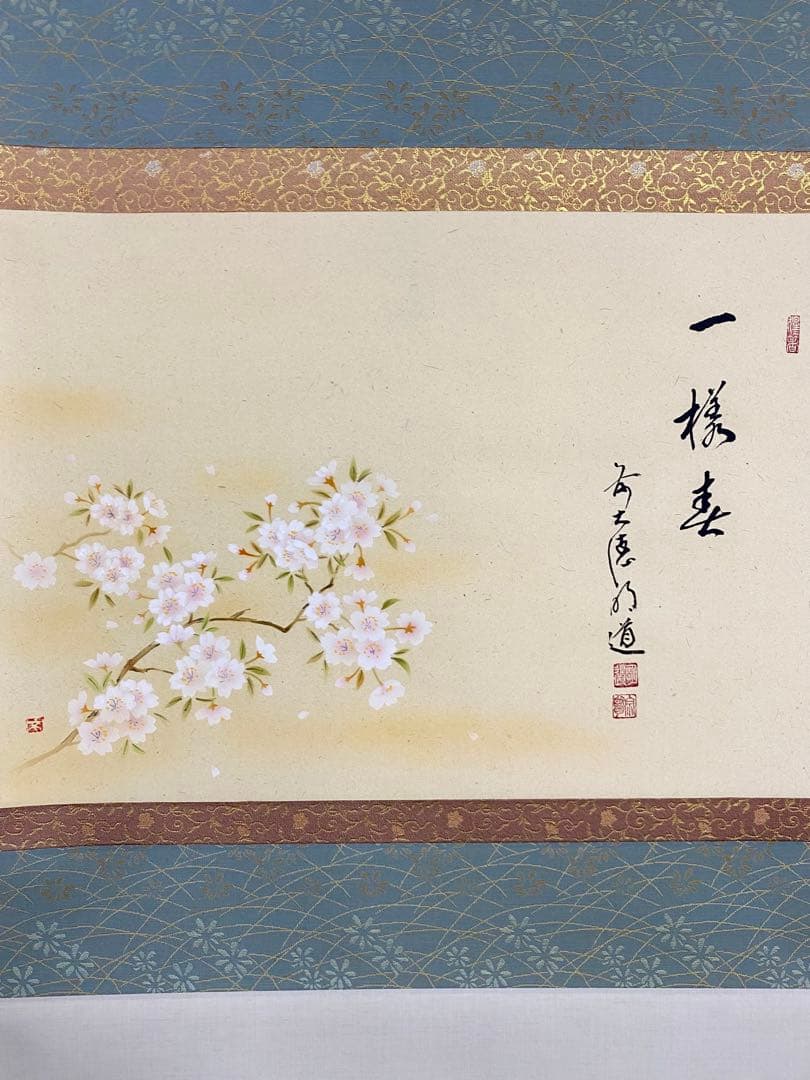 一様春
前大徳明道